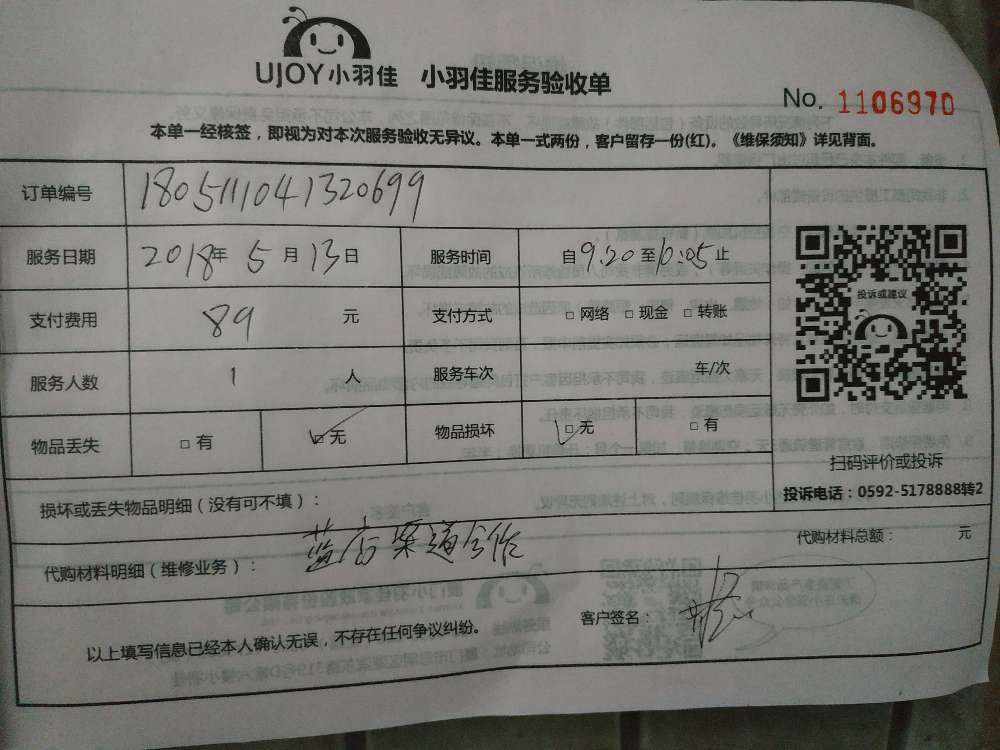 UJOY小羽佳 小羽佳服务验收单
No. 1106970
本单一经核签，即视为对本次服务验收无异议。本单一式两份，客户留存一份(红)。《维保须知》详见背面。
订单编号 180511041320699
服务日期 2018年 5 月 13 日 服务时间 自9:20至10:05止
支付费用 89 元 支付方式 □ 网络 □ 现金 □ 转账
服务人数 1 人 服务车次 车/次
物品丢失 □ 有 □ 无 物品损坏 □ 无 □ 有
投诉或建议
扫码评价或投诉
投诉电话：0592-5178888转2
损坏或丢失物品明细（没有可不填）：
代购材料明细（维修业务）： 蓝店渠道合作
代购材料总额： 元
以上填写信息已经本人确认无误，不存在任何争议纠纷。
客户签名：